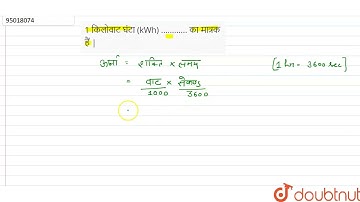 95018074
1 किलोवाट घंटा (kWh) ............ का मात्रक
है |
ऊर्जा = शक्ति × समय [1 hr = 3600 sec]
= वाट/1000 × सेकण्ड/3600
doubtnut